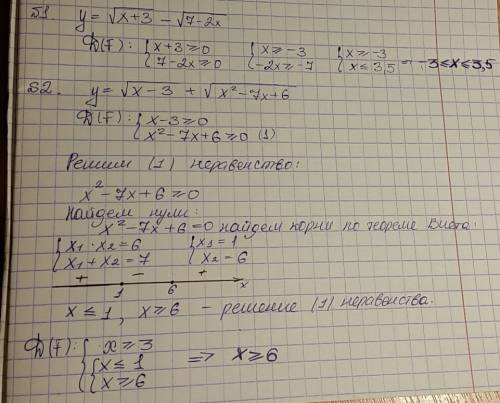 51 y = √x+3 − √7−2x
D(f): { x+3 ≥ 0 { x ≥ −3 { x ≥ −3
{ 7−2x ≥ 0 { −2x ≥ −7 { x ≤ 3,5 − −3 ≤ x ≤ 3,5
52. y = √x−3 + √x²−7x+6
D(f): { x−3 ≥ 0
{ x²−7x+6 ≥ 0 (1)
Решим (1) неравенство:
x²−7x+6 ≥ 0
Найдем нули:
x²−7x+6 = 0 найдем корни по теореме Виета:
{ x₁ · x₂ = 6 { x₁ = 1
{ x₁ + x₂ = 7 { x₂ = 6
+ − +
1 6 x
x ≤ 1, x ≥ 6 − решение (1) неравенства.
D(f): { x ≥ 3
{ x ≤ 1 => x ≥ 6
{ x ≥ 6